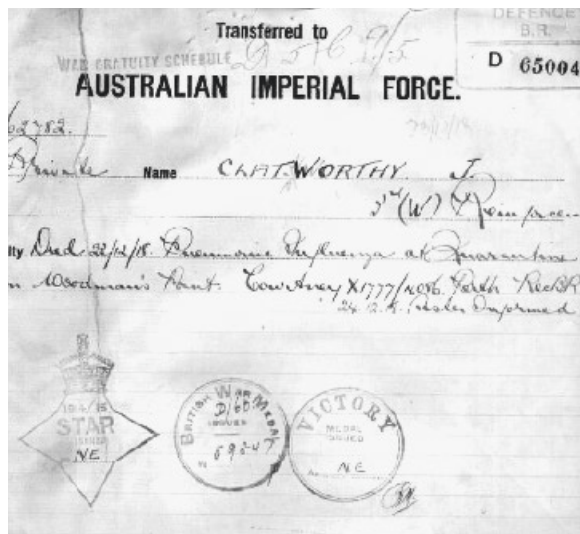 Transferred to
DEFENCE
B.R.
WAR GRATUITY SCHEDULE
D 65004
AUSTRALIAN IMPERIAL FORCE.
62782.
Private Name CLATWORTHY J.
3rd (W) Reinforce.
Died 22/12/18. Pneumonia Influenza at Quarantine
Woodman's Point. Perth
24.12.18. Sister Informed
1914/15
STAR
ISSUED
NE
BRITISH WAR MEDAL
D/60
ISSUED
59247
VICTORY
MEDAL
ISSUED
NE